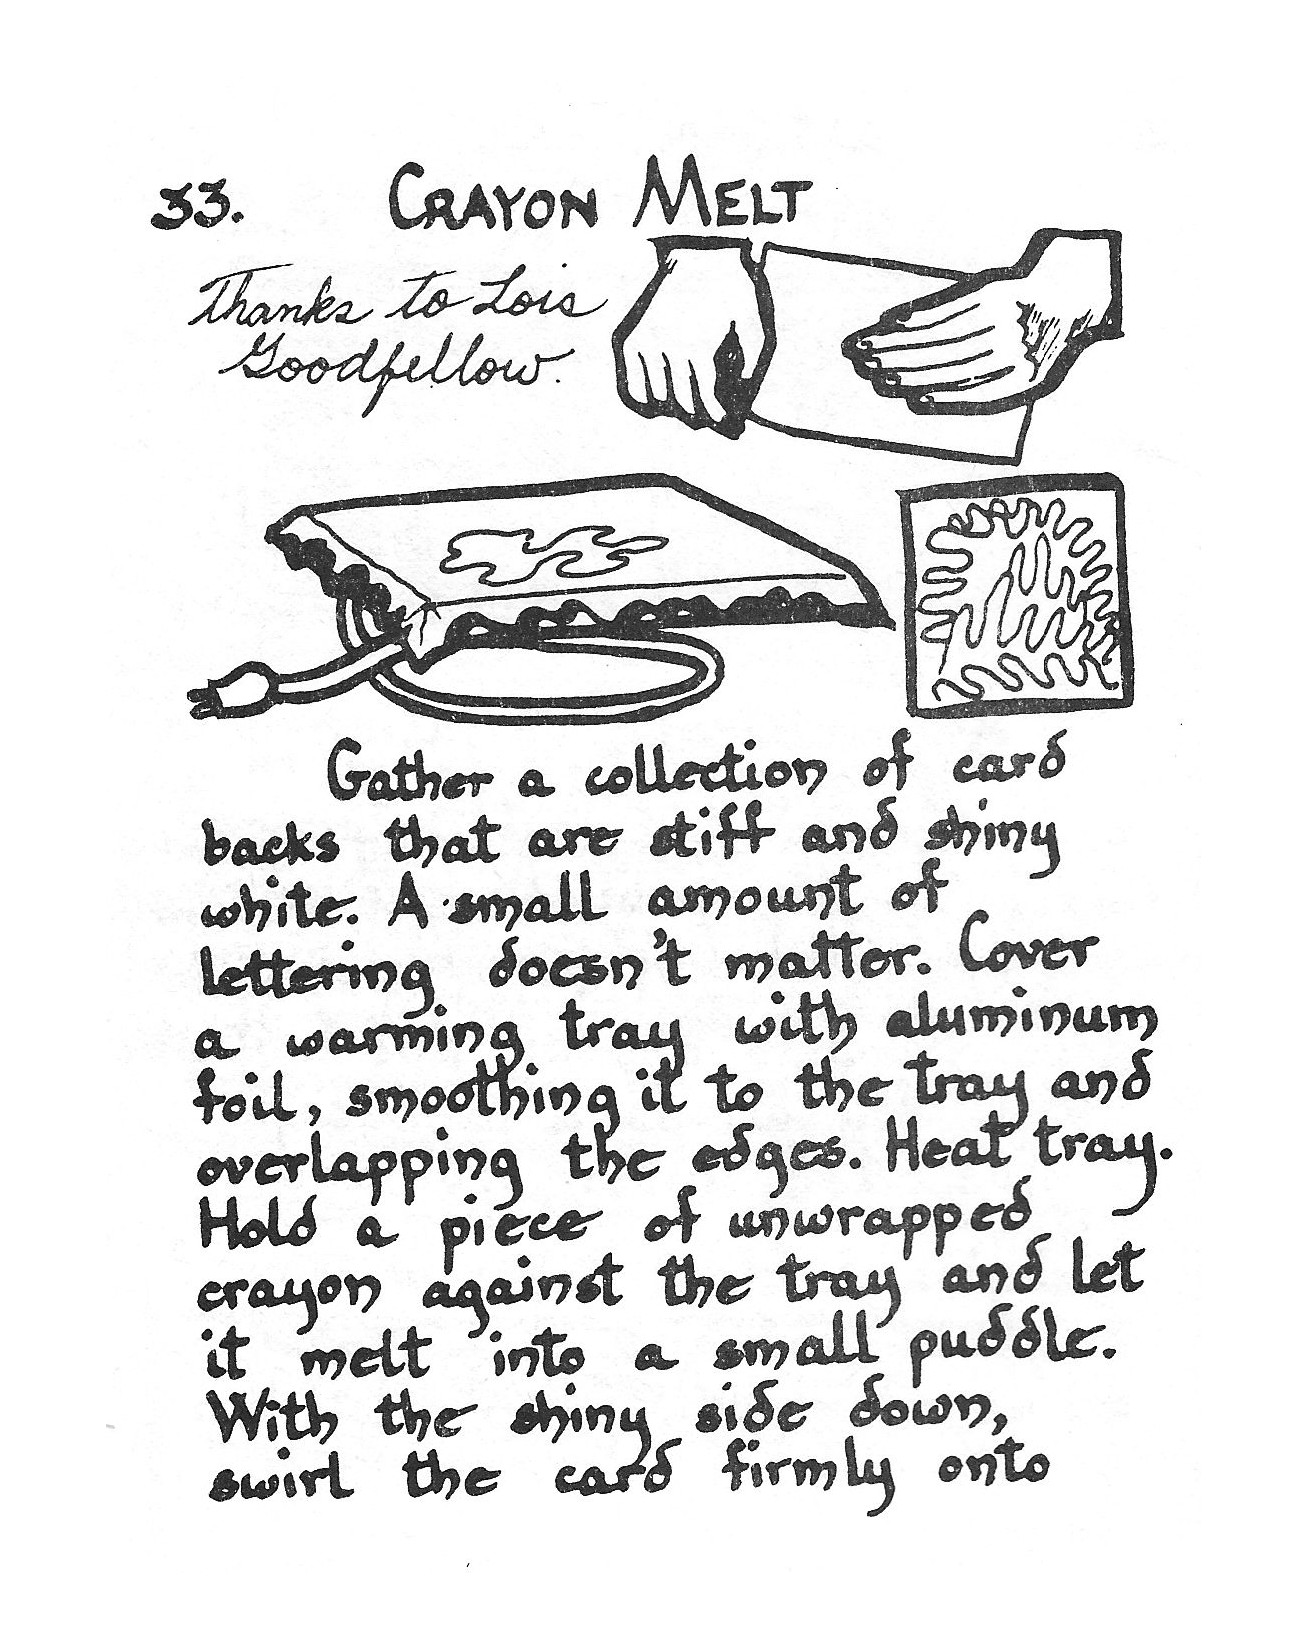 33. CRAYON MELT
Thanks to Lois
Goodfellow.
Gather a collection of card
backs that are stiff and shiny
white. A small amount of
lettering doesn't matter. Cover
a warming tray with aluminum
foil, smoothing it to the tray and
overlapping the edges. Heat tray.
Hold a piece of unwrapped
crayon against the tray and let
it melt into a small puddle.
With the shiny side down,
swirl the card firmly onto